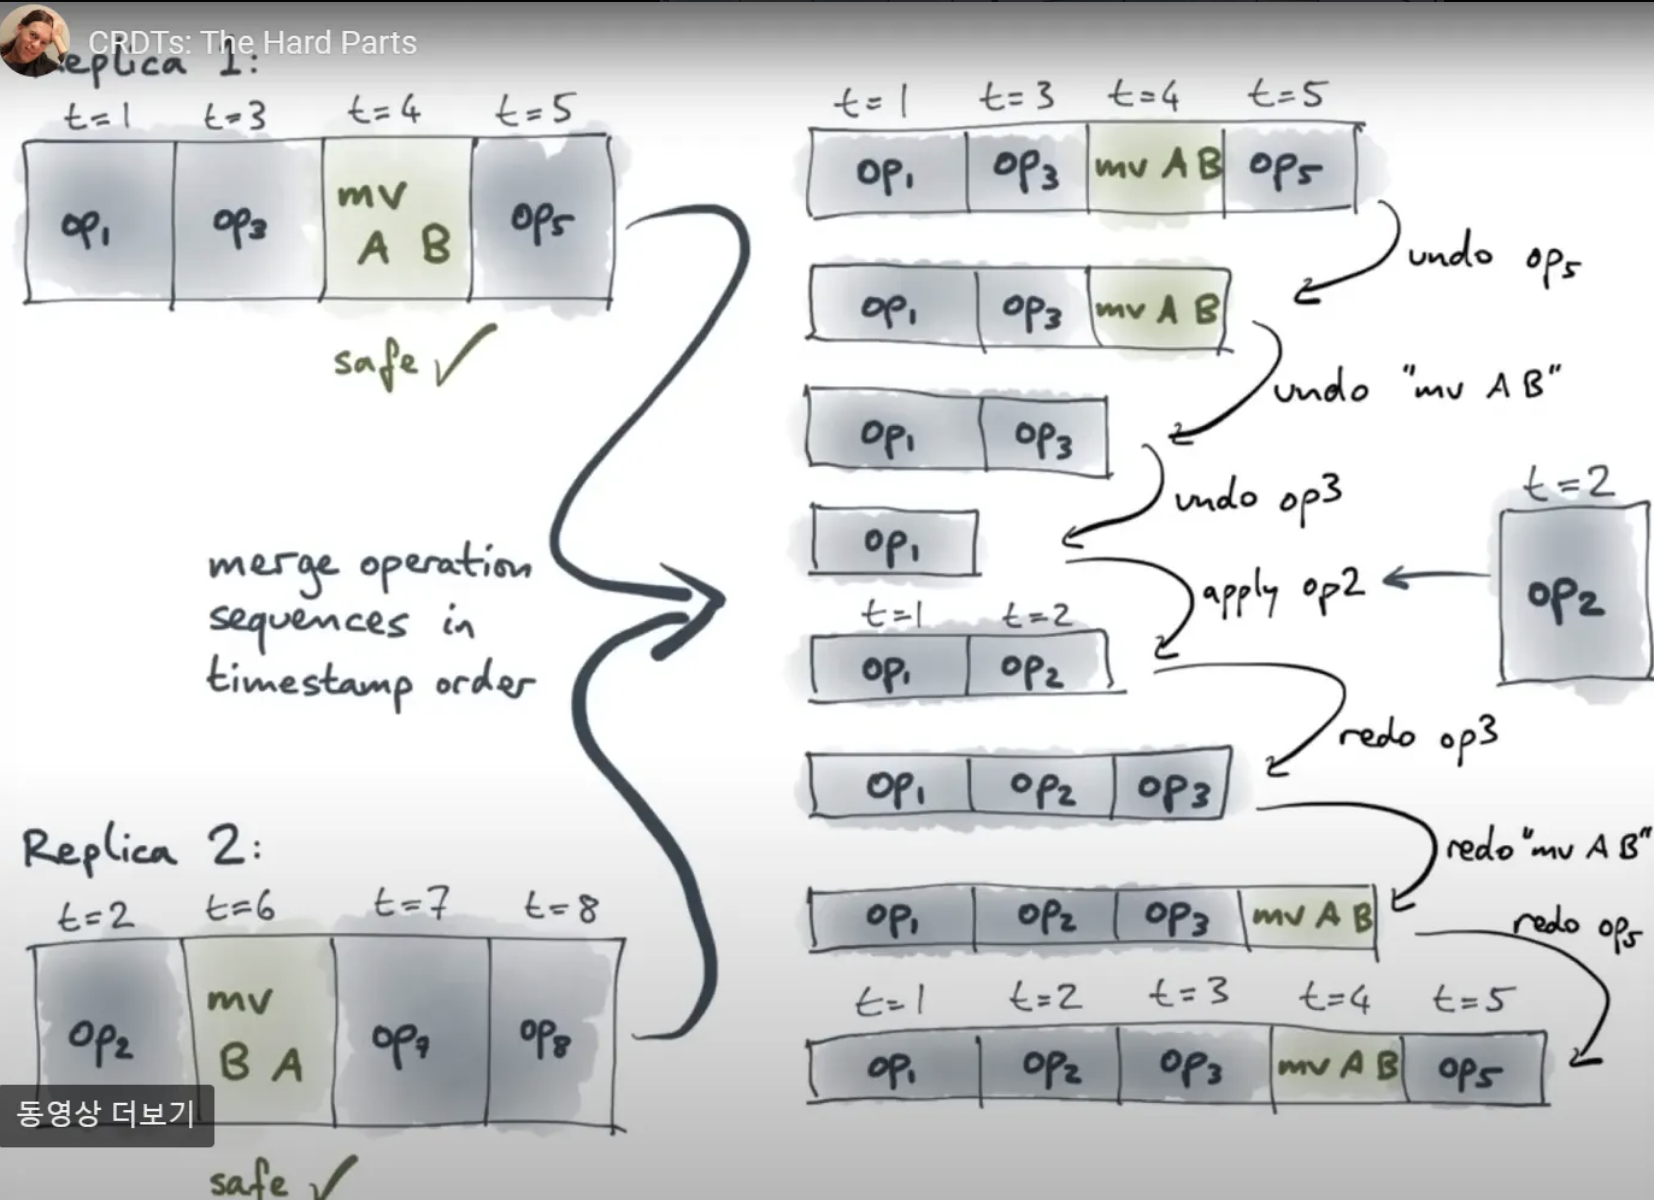 CRDTs: The Hard Parts
Replica 1:
t=1 t=3 t=4 t=5
op1 op3 mv A B op5
safe ✓
merge operation
sequences in
timestamp order
Replica 2:
t=2 t=6 t=7 t=8
op2 mv B A op7 op8
safe ✓
동영상 더보기
t=1 t=3 t=4 t=5
op1 op3 mv A B op5
undo op5
op1 op3 mv A B
undo "mv A B"
op1 op3
undo op3
op1
apply op2
t=2
op2
t=1 t=2
op1 op2
redo op3
op1 op2 op3
redo "mv A B"
op1 op2 op3 mv A B
redo op5
t=1 t=2 t=3 t=4 t=5
op1 op2 op3 mv A B op5